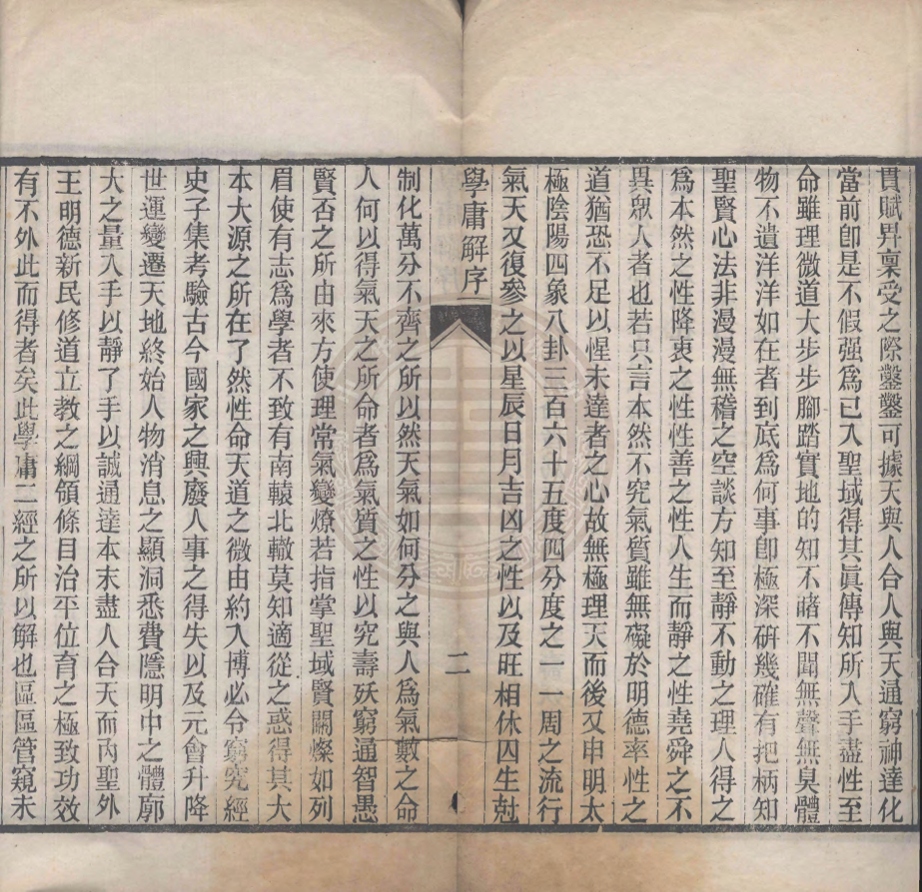 貫賦畀稟受之際鑿鑿可據天與人合人與天通窮神達化
當前卽是不假强爲已入聖域得其眞傳知所入手盡性至
命雖理微道大步步腳踏實地的知不睹不聞無聲無臭體
物不遺洋洋如在者到底爲何事卽極深硏幾確有把柄知
聖賢心法非漫漫無稽之空談方知至靜不動之理人得之
爲本然之性降衷之性性善之性人生而靜之性堯舜之不
異眾人者也若只言本然不究氣質雖無礙於明德率性之
道猶恐不足以惺未達者之心故無極理天而後又申明太
極陰陽四象八卦三百六十五度四分度之一一周之流行
氣天又復參之以星辰日月吉凶之性以及旺相休囚生尅
學庸解序
二
制化萬分不齊之所以然天氣如何分之與人爲氣數之命
人何以得氣天之所命者爲氣質之性以究壽殀窮通智愚
賢否之所由來方使理常氣變燎若指掌聖域賢關燦如列
眉使有志爲學者不致有南轅北轍莫知適從之惑得其大
本大源之所在了然性命天道之微由約入博必令窮究經
史子集考驗古今國家之興廢人事之得失以及元會升降
世運變遷天地終始人物消息之顯洞悉費隱明中之體廓
大之量入手以靜了手以誠通達本末盡人合天而內聖外
王明德新民修道立敎之綱領條目治平位育之極致功效
有不外此而得者矣此學庸二經之所以解也區區管窺未